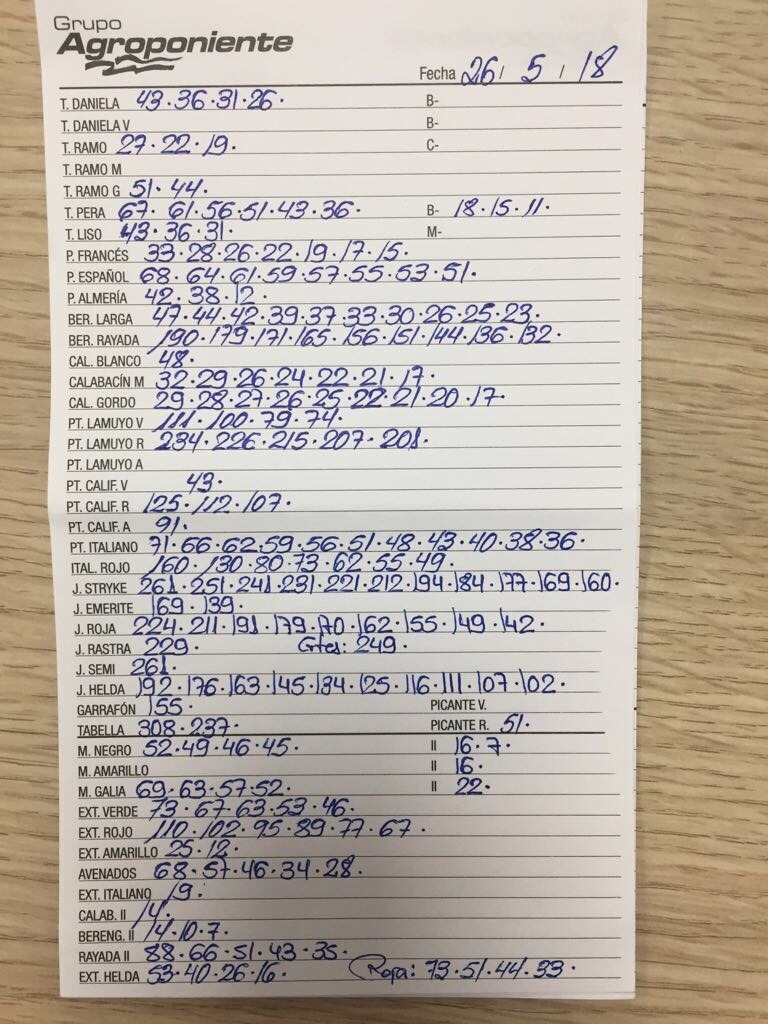 Grupo
Agroponiente
Fecha 26 / 5 / 18
T. DANIELA 43·36·31·26· B-
T. DANIELA V B-
T. RAMO 27·22·19· C-
T. RAMO M
T. RAMO G 51·44·
T. PERA 67·61·56·51·43·36· B- 18·15·11·
T. LISO 43·36·31· M-
P. FRANCÉS 33·28·26·22·19·17·15·
P. ESPAÑOL 68·64·61·59·57·55·53·51·
P. ALMERÍA 42·38·12·
BER. LARGA 47·44·42·39·37·33·30·26·25·23·
BER. RAYADA 190·179·171·165·156·151·144·136·132·
CAL. BLANCO 48·
CALABACÍN M 32·29·26·24·22·21·17·
CAL. GORDO 29·28·27·26·25·22·21·20·17·
PT. LAMUYO V 111·100·79·74·
PT. LAMUYO R 234·226·215·207·201·
PT. LAMUYO A
PT. CALIF. V 43·
PT. CALIF. R 125·112·107·
PT. CALIF. A 91·
PT. ITALIANO 71·66·62·59·56·51·48·43·40·38·36·
ITAL. ROJO 160·130·80·73·62·55·49·
J. STRYKE 261·251·241·231·221·212·194·184·177·169·160·
J. EMERITE 169·139·
J. ROJA 224·211·191·179·170·162·155·149·142·
J. RASTRA 229· Gtes: 249·
J. SEMI 261·
J. HELDA 192·176·163·145·134·125·116·111·107·102·
GARRAFÓN 155· PICANTE V.
TABELLA 308·237· PICANTE R. 51·
M. NEGRO 52·49·46·45· II 16·7·
M. AMARILLO II 16·
M. GALIA 69·63·57·52· II 22·
EXT. VERDE 73·67·63·53·46·
EXT. ROJO 110·102·95·89·77·67·
EXT. AMARILLO 25·12·
AVENADOS 68·57·46·34·28·
EXT. ITALIANO 19·
CALAB. II 14·
BERENG. II 14·10·7·
RAYADA II 88·66·51·43·35·
EXT. HELDA 53·40·26·16· Roja: 73·51·44·33·